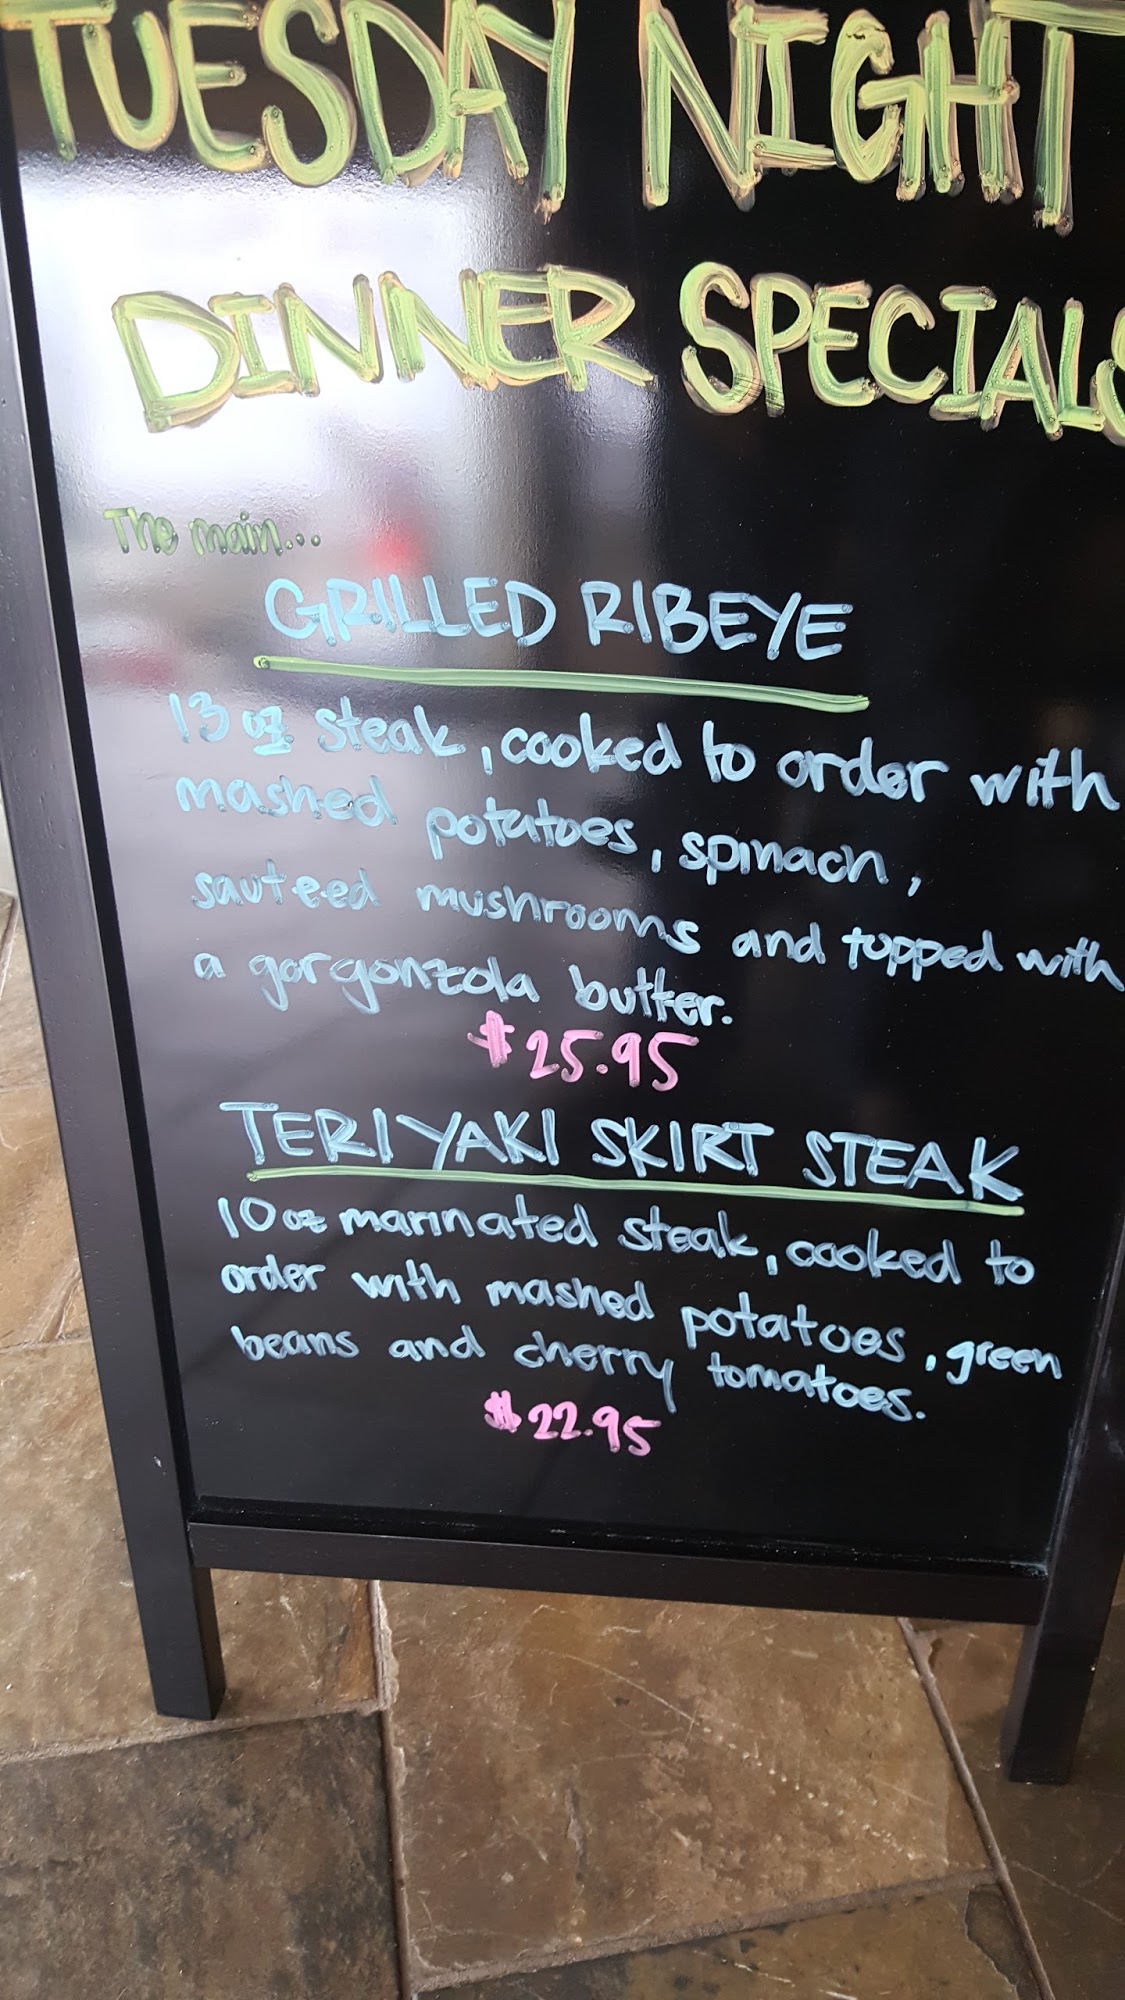 TUESDAY NIGHT
DINNER SPECIALS
The main...
GRILLED RIBEYE
13 oz steak, cooked to order with
mashed potatoes, spinach,
sauteed mushrooms and topped with
a gorgonzola butter.
$25.95
TERIYAKI SKIRT STEAK
10 oz marinated steak, cooked to
order with mashed potatoes, green
beans and cherry tomatoes.
$22.95